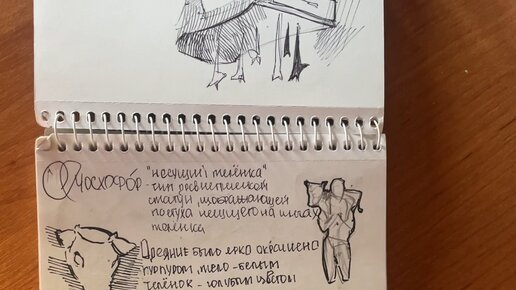 Мосхофор "несущий телёнка"
- тип древнегреческой
статуи, изображающей
пастуха несущего на плечах
теленка
Древние было ярко окрашено
пурпуром, тело - белым
телёнок - голубым цветом